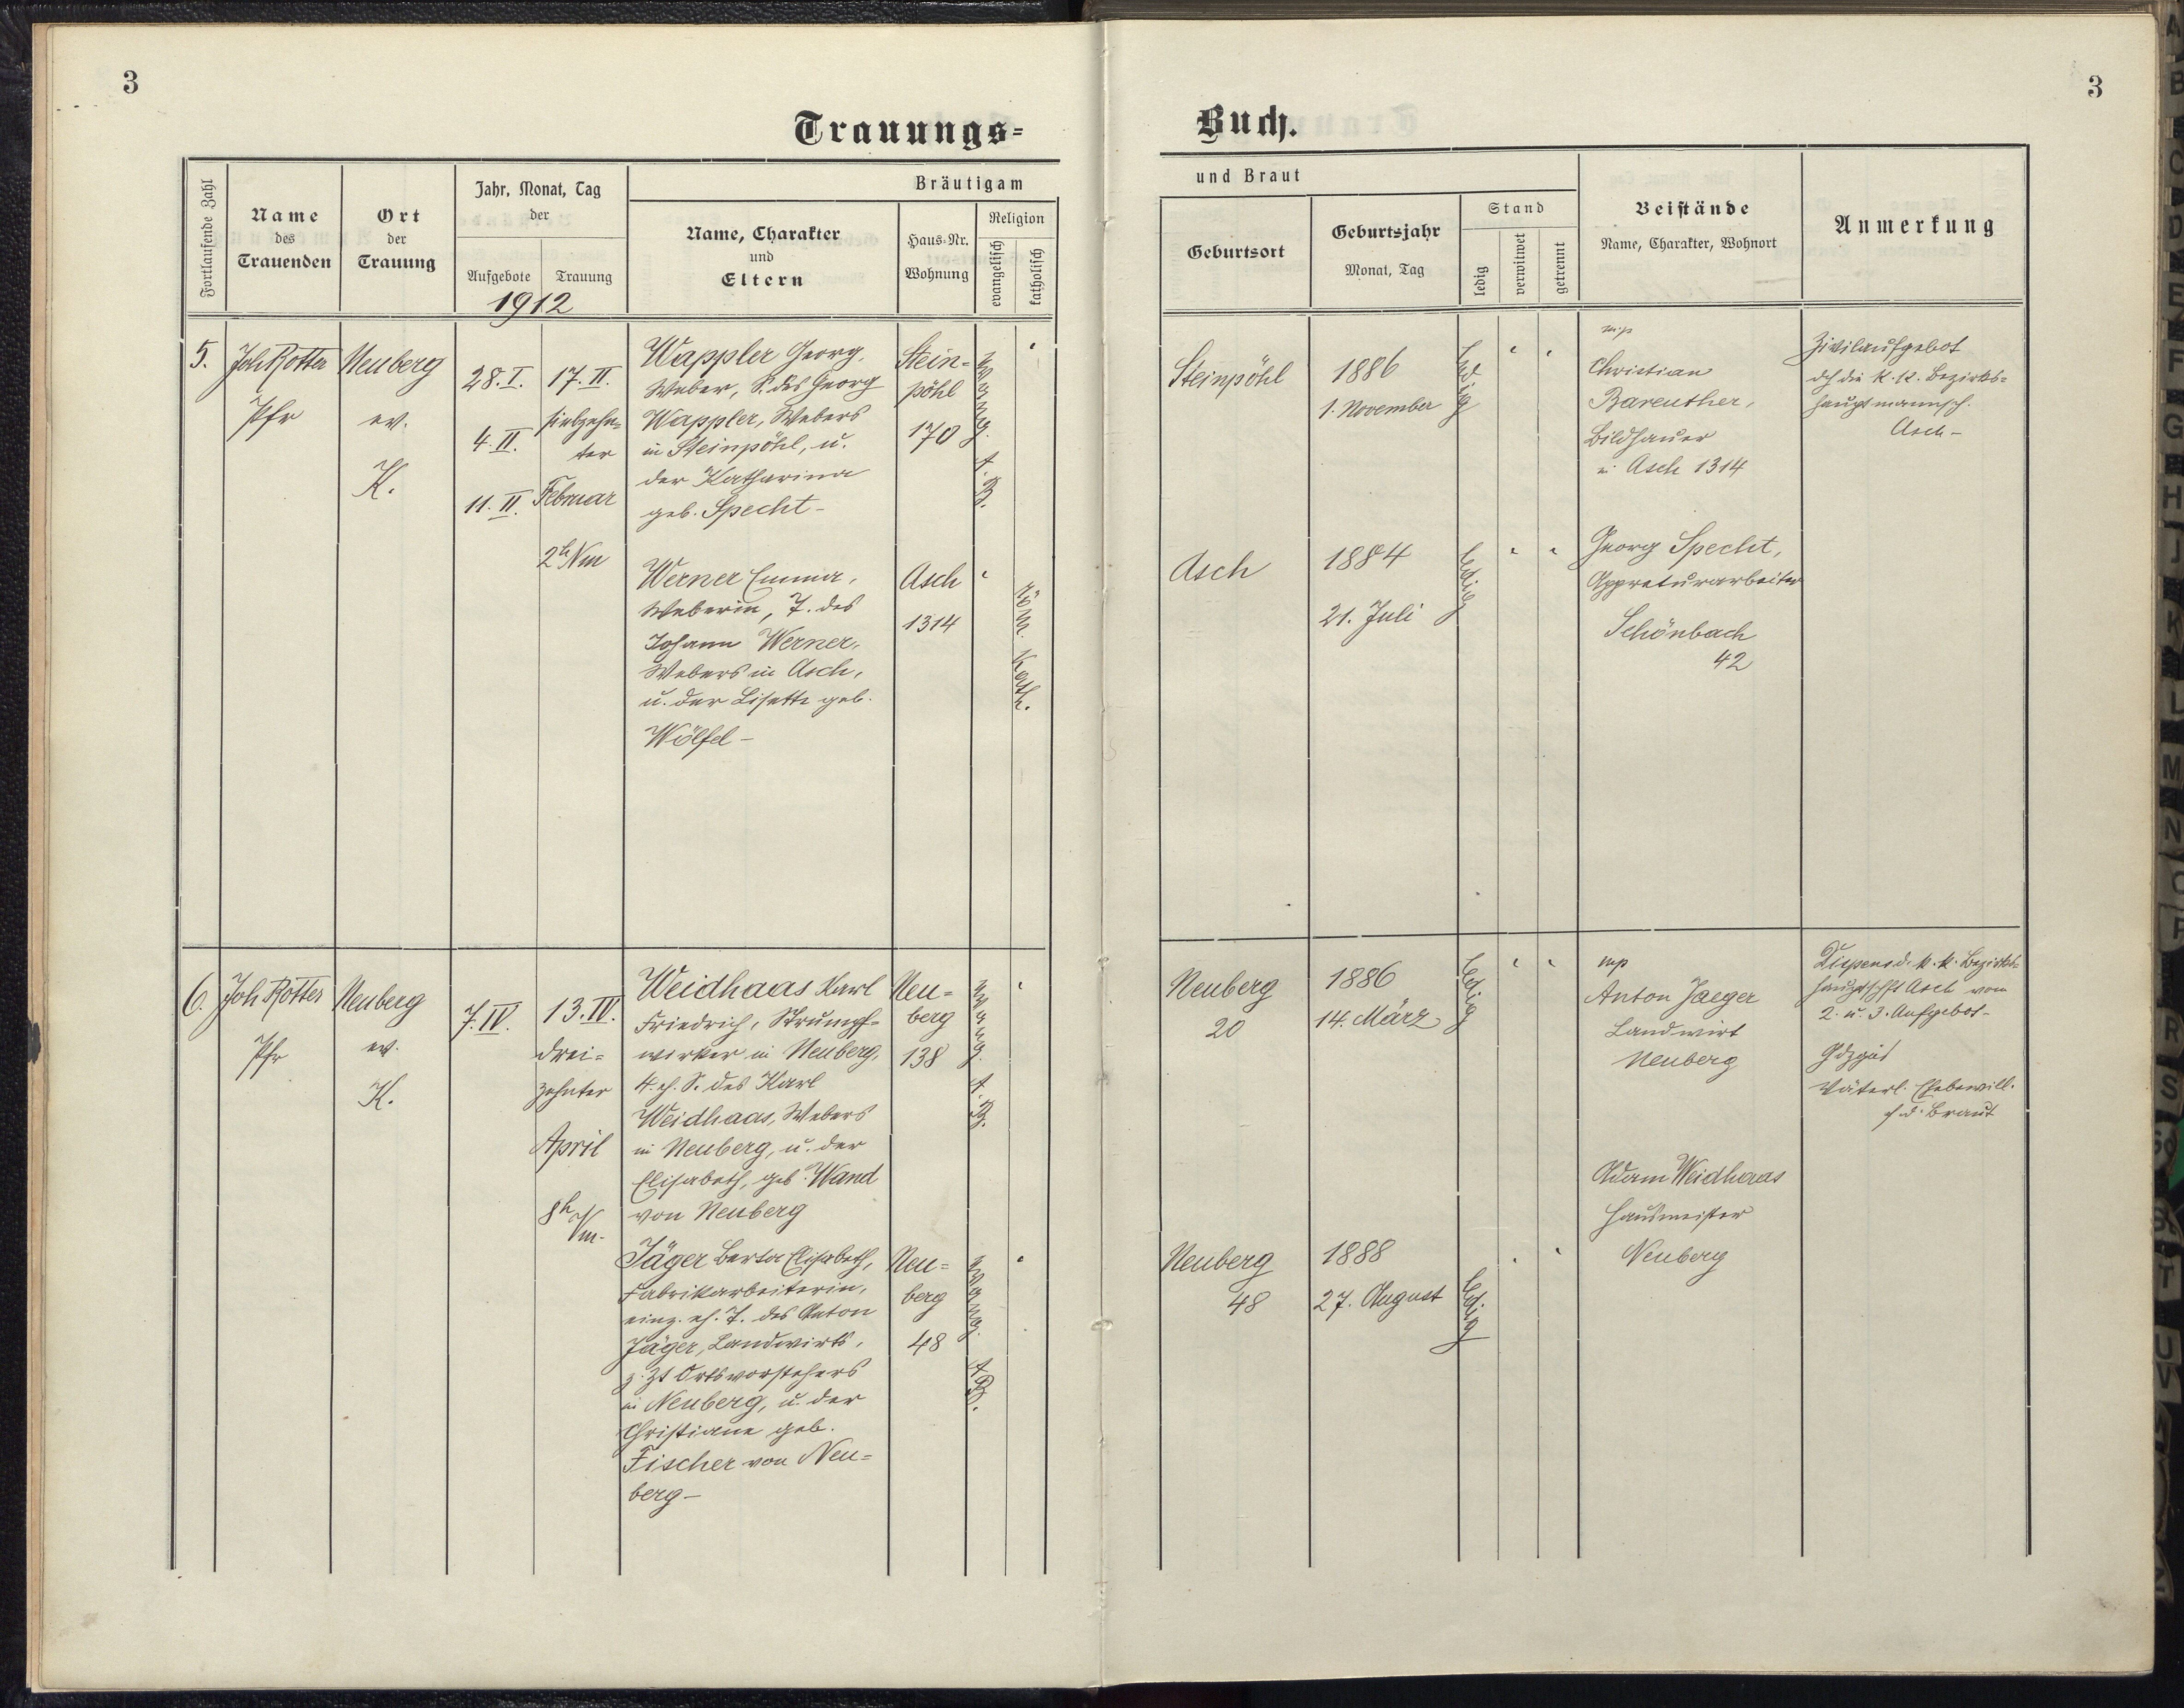 3
3
Trauungs=
Buch.
Fortlaufende Zahl
Name
des
Trauenden
Ort
der
Trauung
Jahr, Monat, Tag
der
Aufgebote
Trauung
1912
Bräutigam
Name, Charakter
und
Eltern
Haus-Nr.
Wohnung
Religion
evangelisch
katholisch
und Braut
Geburtsort
Geburtsjahr
Monat, Tag
Stand
ledig
verwitwet
getrennt
Beistände
Name, Charakter, Wohnort
Anmerkung
5.
Joh Rotter
Pfr
Neuberg
ev.
K.
28. I.
4. II.
11. II.
17. II.
siebzehn=
ter
Februar
2h Nm
Wappler Georg,
Weber, S. des Georg
Wappler, Webers
in Steinpöhl, u.
der Katharina
geb. Specht -
Stein=
pöhl
170
evang.
A.
B.
Werner Emma,
Weberin, T. des
Johann Werner,
Webers in Asch,
u. der Lisette geb.
Wölfel -
Asch
1314
röm. kath.
Steinpöhl
1886
1. November
ledig
Asch
1884
21. Juli
ledig
mp
Christian
Bareuther,
Bildhauer
in Asch 1314
Georg Specht,
Appreturarbeiter
Schönbach
42
Zivilaufgebot
dch die k. k. Bezirks=
hauptmannsch.
Asch -
6.
Joh Rotter
Pfr
Neuberg
ev.
K.
7. IV.
13. IV.
drei=
zehnter
April
8h Vm.
Weidhaas Karl
Friedrich, Strumpf=
wirker in Neuberg,
4. eh. S. des Karl
Weidhaas, Webers
in Neuberg, u. der
Elisabeth, geb. Wand
von Neuberg
Neu=
berg
138
evang.
A.
B.
Jäger Berta Elisabeth,
Fabrikarbeiterin,
einz. eh. T. des Anton
Jäger, Landwirts,
z. Zt Ortsvorstehers
in Neuberg, u. der
Christiane geb.
Fischer von Neu=
berg -
Neu=
berg
48
evang.
A.
B.
Neuberg
20
1886
14. März
ledig
Neuberg
48
1888
27. August
ledig
mp
Anton Jaeger
Landwirt
Neuberg
Adam Weidhaas
Hausmeister
Neuberg
Dispens d. k. k. Bezirks=
hauptschft Asch vom
2. u. 3. Aufgebot -
Väterl. Ehebewill.
f. d. Braut